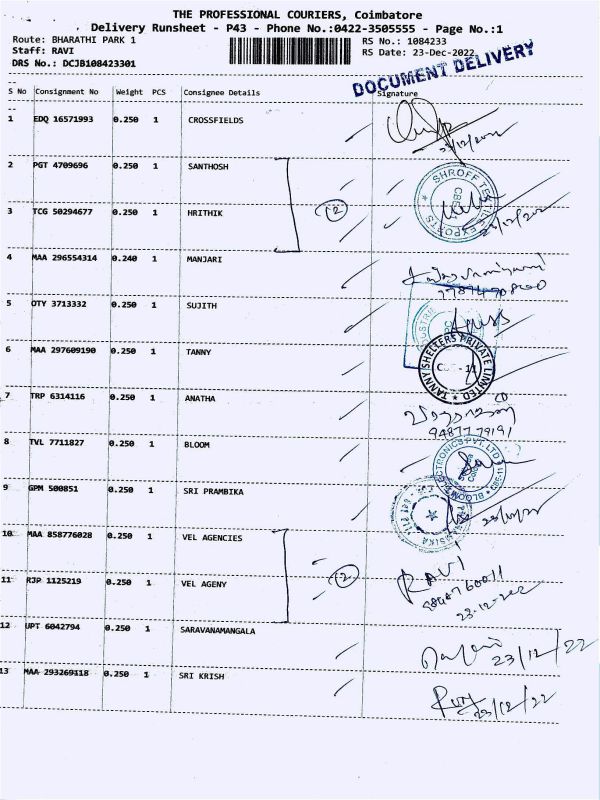 THE PROFESSIONAL COURIERS, Coimbatore
Delivery Runsheet - P43 - Phone No.:0422-3505555 - Page No.:1
Route: BHARATHI PARK 1
RS No.: 1084233
Staff: RAVI
RS Date: 23-Dec-2022
DRS No.: DCJB108423301
DOCUMENT DELIVERY
S No Consignment No Weight PCS Consignee Details Signature
1 EDQ 16571993 0.250 1 CROSSFIELDS
2 PGT 4709696 0.250 1 SANTHOSH
3 TCG 50294677 0.250 1 HRITHIK
2
4 MAA 296554314 0.240 1 MANJARI
5 OTY 3713332 0.250 1 SUJITH
6 MAA 297609190 0.250 1 TANNY
TANNY SHELTERS PRIVATE LIMITED
7 TRP 6314116 0.250 1 ANATHA
9487779191
8 TVL 7711827 0.250 1 BLOOM
9 GPM 500851 0.250 1 SRI PRAMBIKA
10 MAA 858776028 0.250 1 VEL AGENCIES
11 RJP 1125219 0.250 1 VEL AGENY
2
RAVI
12 UPT 6042794 0.250 1 SARAVANAMANGALA
23/12/22
13 MAA 293269118 0.250 1 SRI KRISH
23/12/22